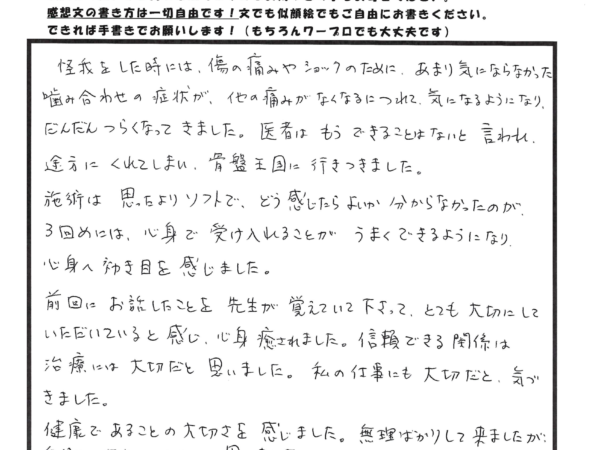 感想文の書き方は一切自由です!文でも似顔絵でもご自由にお書きください。
できれば手書きでお願いします!(もちろんワープロでも大丈夫です)
怪我をした時には、傷の痛みやショックのために、あまり気にならなかった
噛み合わせの症状が、他の痛みがなくなるにつれて、気になるようになり、
だんだんつらくなってきました。医者はもうできることはないと言われ、
途方にくれてしまい、骨盤王国に行きつきました。
施術は思ったよりソフトで、どう感じたらよいか分からなかったのが、
3回めには、心身で受け入れることがうまくできるようになり、
心身へ効き目を感じました。
前回にお話したことを先生が覚えていて下さって、とても大切にして
いただいていると感じ、心身癒されました。信頼できる関係は
治療には大切だと思いました。私の仕事にも大切だと、気づ
きました。
健康であることの大切さを感じました。無理ばかりして来ましたが、